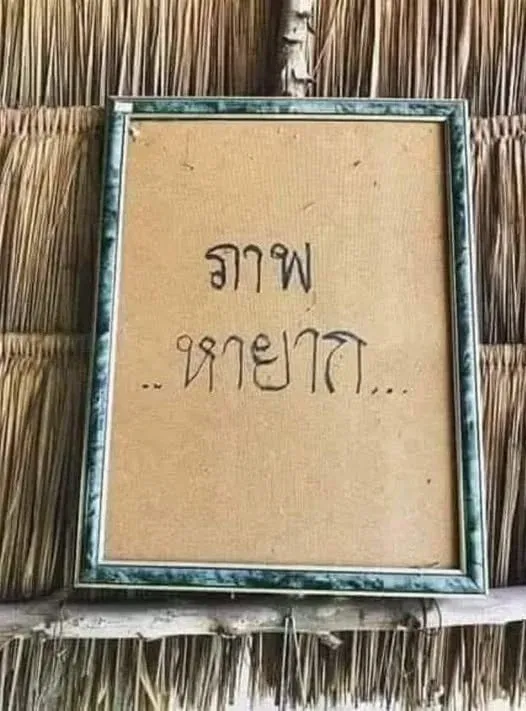 ภาพ
..หายาก...